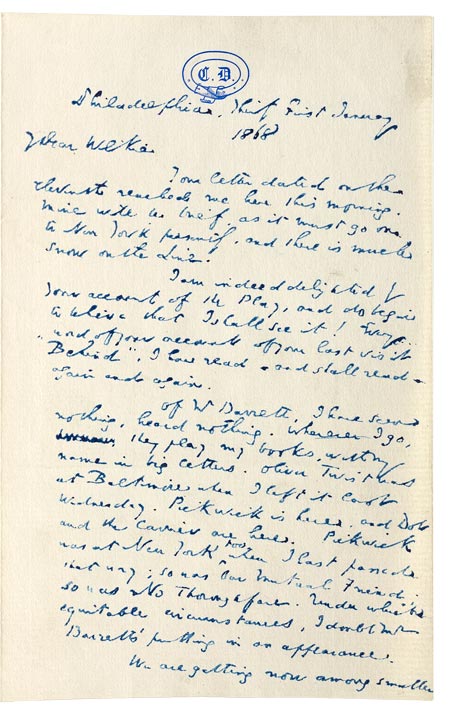 C. D.
Philadelphia, Thirty First January
1868
My dear Wilkie.
Your letter dated on the
eleventh reached me here this morning.
mine will be brief, as it must go on
to New York presently, and there is much
snow on the Line.
I am indeed delighted by
your account of the Play, and do begin
to believe that I shall see it! Every
word of your account of your last visit
"Behind", I have read - and shall read -
again and again.
Of Mr Barrett, I have seen
nothing, heard nothing. Wherever I go,
they play my books, with my
name in big letters. Oliver Twist was
at Baltimore when I left it last
Wednesday. Pickwick is here, and Dot
and the Carrier are here. Pickwick
was at New York too when I last passed
that way; so was Our Mutual Friend;
so was No Thoroughfare. Under which
equitable circumstances, I doubt Mr
Barrett's putting in an appearance.
We are getting now among smaller